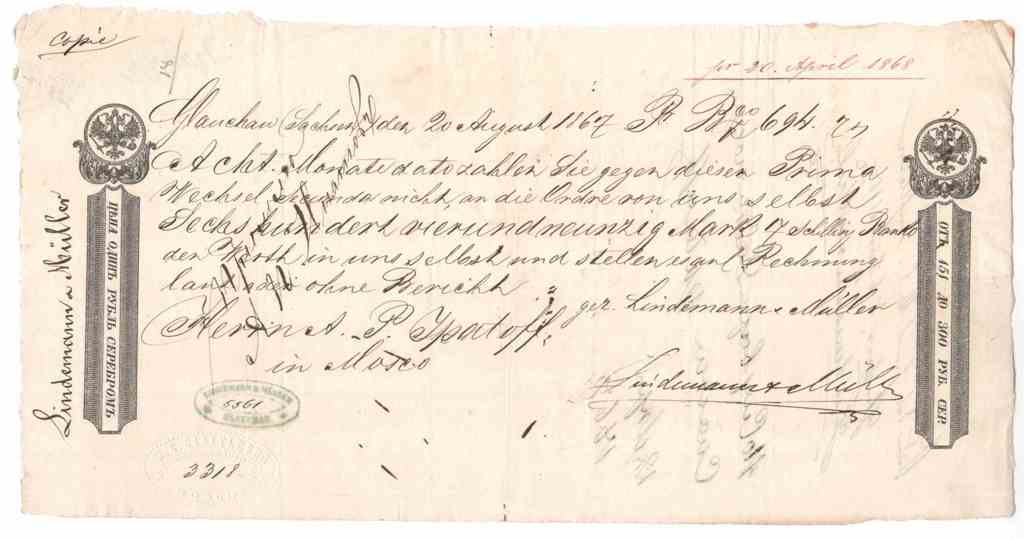 Copie
pr 20. April 1868
Glauchau (Sachsen) den 20 August 1867 P. Bco 694. 7
Acht Monate dato zahlen Sie gegen diesen Prima
Wechsel nicht, an die Ordre von uns selbst
Sechshundert vierundneunzig Mark 7 Schilling Banko
den Werth in uns selbst und stellen es auf Rechnung
laut oder ohne Bericht
Herrn A. P. Ipatoff gez. Lindemann & Müller
in Mosco
Lindemann & Müller
Lindemann & Müller
ЦѢНА ОДИНЪ РУБЛЬ СЕРЕБРОМЪ.
ОТЪ 151 ДО 300 РУБ. СЕР.
LINDEMANN & MÜLLER
5561
GLAUCHAU
3318.